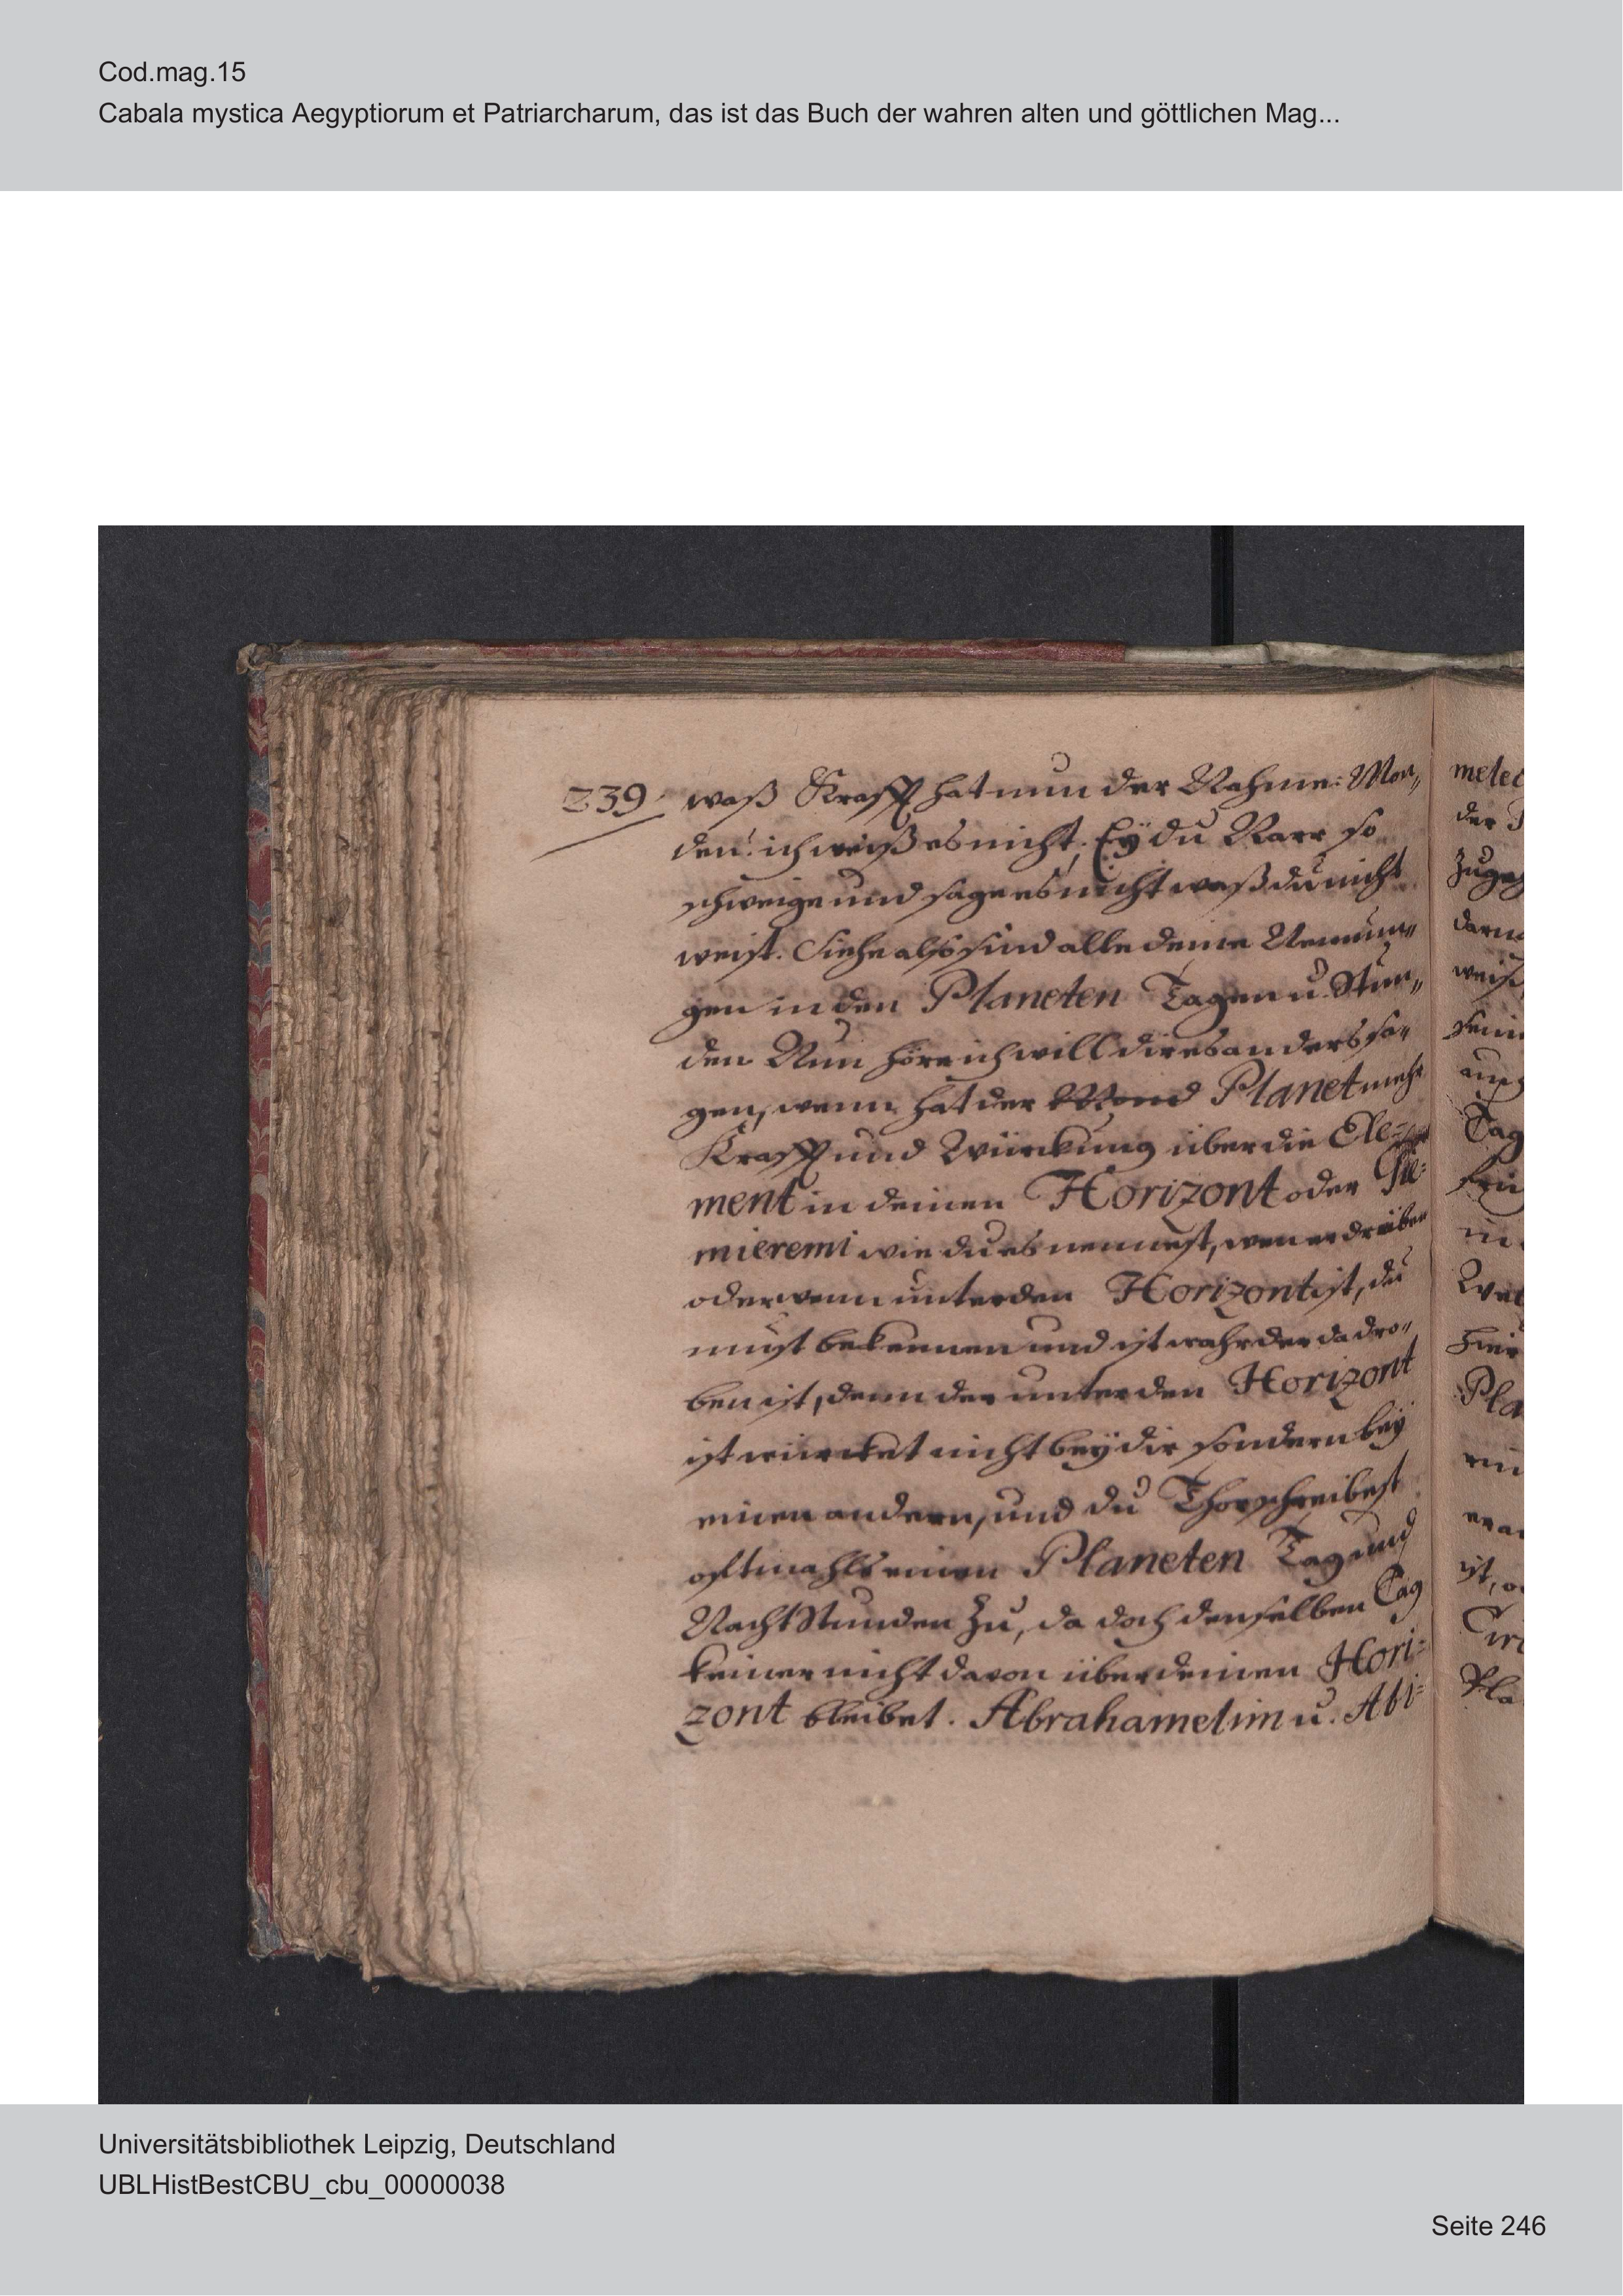 Cod.mag.15
Cabala mystica Aegyptiorum et Patriarcharum, das ist das Buch der wahren alten und göttlichen Mag...
239 waß Krafft hat nun der Nahme: Mon„
den? ich weiß es nicht, Eÿ du Narr so
schweige und sage es nicht waß du nicht
weist. Siehe also sind alle deine
gen in den Planeten Tagen u. Stun„
den. Nun höre ich will dir es anders sa„
gen, wenn hat der Mond Planet mehr
Krafft und Würckung über die Ele=
ment in deinen Horizont oder
mieremi wie du es nennest, wen er drüber
oder wenn unter den Horizont ist, du
must bekennen und ist wahr der da dro„
ben ist, denn der unter den Horizont
ist würcket nicht beÿ dir sondern beÿ
einen andern, und du Thor schreibest
oftmahls einen Planeten Tag und
Nacht Stunden zu, da doch denselben Tag
keiner nicht davon über deinen Hori=
zont bleibet. Abrahamelim u. Abi=
melec
der
darn
Tag
in
Pla
ist, o
Circ
Pla
Universitätsbibliothek Leipzig, Deutschland
UBLHistBestCBU_cbu_00000038
Seite 246